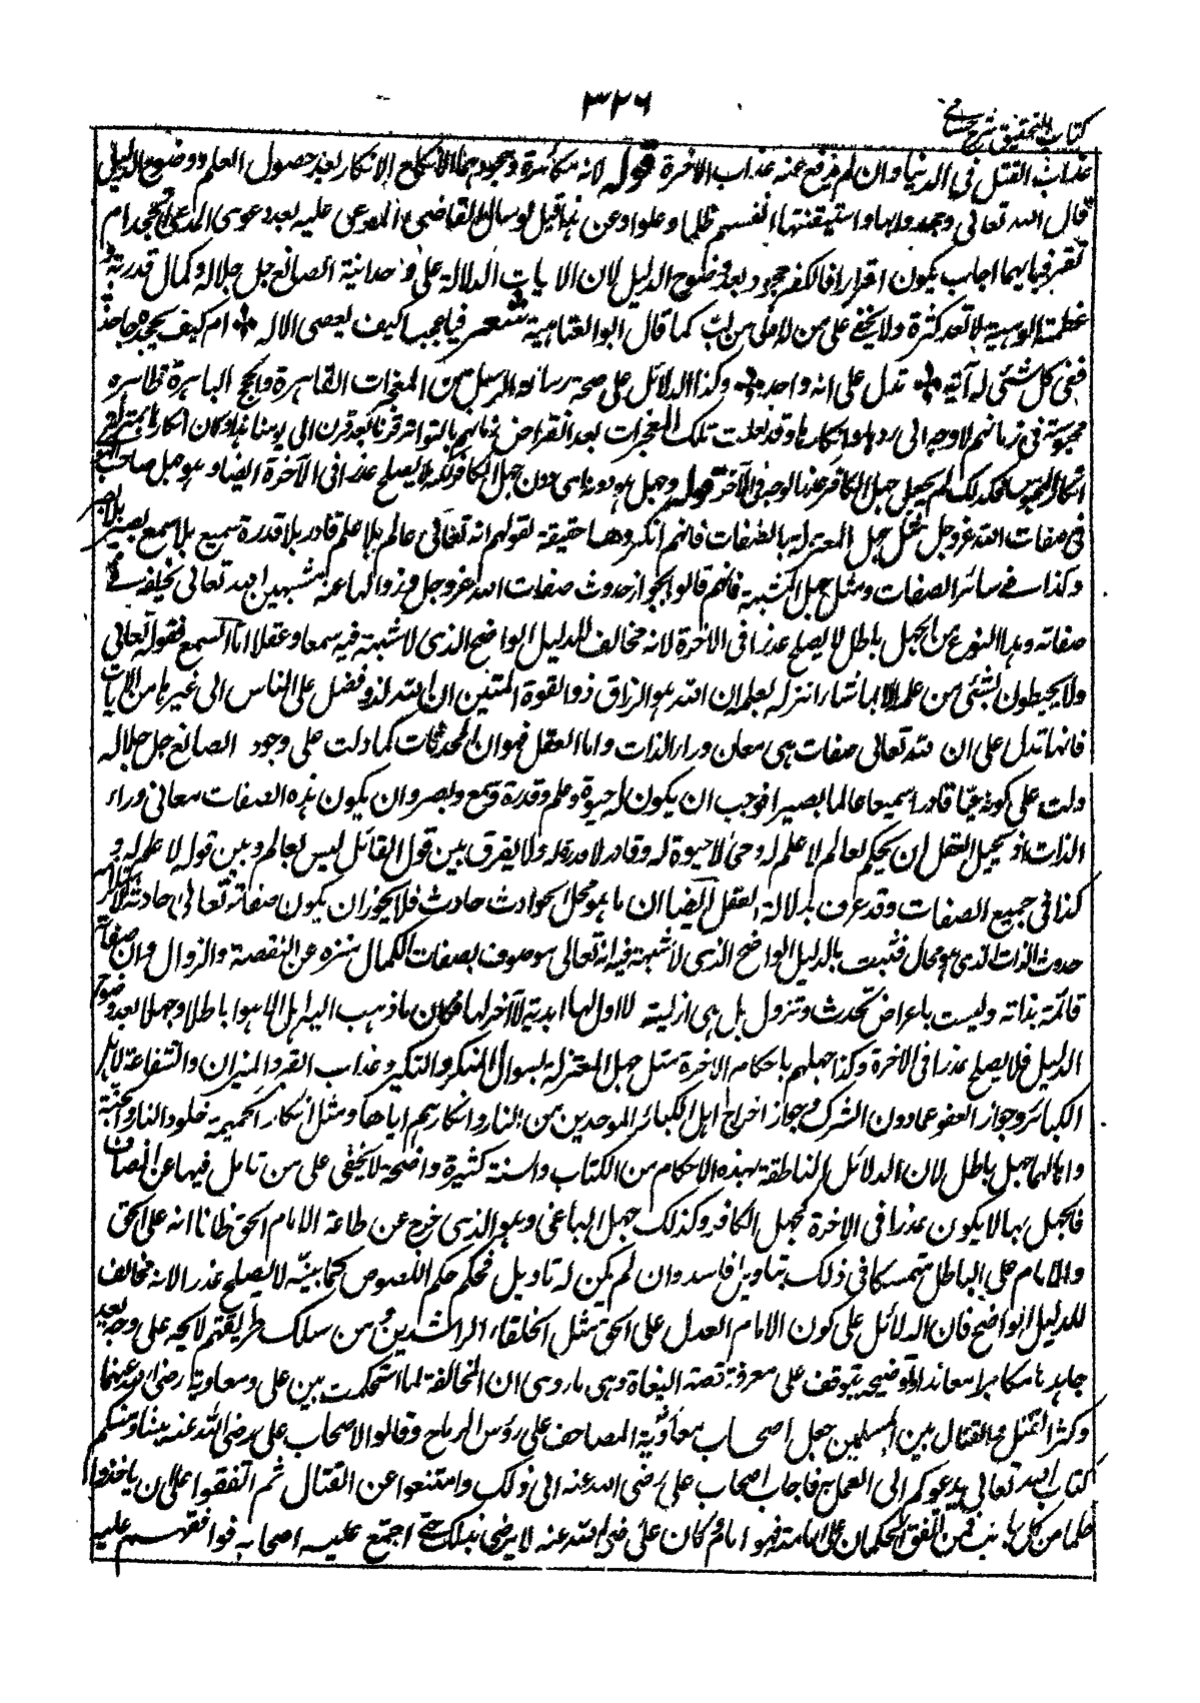 ٣٢٦
كتاب التحقيق شرح حسامي
عذاب القتل في الدنيا وان لم يرفع عنه عذاب الآخرة قوله لانه مكابرة وجحود بهما الانكار بعد حصول العلم ووضوح الدليل
قال الله تعالى وجحدوا بها واستيقنتها انفسهم ظلما وعلوا وعن هذا قيل لو سال القاضي المدعى عليه بعد دعوى المدعي اتجحد ام
تقر فبايهما اجاب يكون اقرارا فالكفر جحود بعد وضوح الدليل لان الايات الدلالة على وحدانية الصانع جل جلاله وكمال قدرته و
عظمة الوهيته لا تعد كثرة ولا يخفى على من له ادنى من لب كما قال ابو العتاهية شعر فيا عجبا كيف يعصى الاله ام كيف يجحده جاحد
ففي كل شئ له آية تدل على انه واحد وكذا الدلائل على صحة رسالة الرسل من المعجزات القاهرة والحجج الباهرة ظاهرة
محسوسة في زمانهم لا وجه الى ردها وانكارها وقد نقلت تلك المعجزات بعد انقراض زمانهم بالتواتر قرنا بعد قرن الى يومنا هذا فكان انكارها بمنزلة
انكار المحسوس فكذلك لم يجعل جهل الكافر عذرا بوجه في الآخرة قوله وجهل هو دونه اي دون جهل الكافر لكنه لا يصلح عذرا في الآخرة ايضا وهو جهل صاحب الهوى
في صفات الله عز وجل مثل جهل المعتزلة بالصفات فانهم انكروها حقيقة لقولهم انه تعالى عالم بلا علم قادر بلا قدرة سميع بلا سمع بصير بلا بصر
وكذا في سائر الصفات ومثل جهل المشبهة فانهم قالوا بجواز حدوث صفات الله عز وجل وزوالها عنه مشبهين الله تعالى بخلقه في
صفاته وهذا النوع من الجهل باطل لا يصلح عذرا في الاخرة لانه مخالف للدليل الواضح الذي لا شبهة فيه سمعا وعقلا اما السمع فقوله تعالى
ولا يحيطون بشئ من علمه الا بما شاء انزله بعلمه ان الله هو الرزاق ذو القوة المتين ان الله لذو فضل على الناس الى غيرها من الايات
فانها تدل على ان لله تعالى صفات هي معان وراء الذات واما العقل فهو ان المحدثات كما دلت على وجود الصانع جل جلاله
دلت على كونه حيا قادرا سميعا عالما بصيرا فوجب ان يكون له حيوة وعلم وقدرة وسمع وبصر وان يكون هذه الصفات معاني وراء
الذات اذ يحيل العقل ان يحكم بعالم لا علم له وحي لا حيوة له وقادر لا قدرة له ولا يفرق بين قول القائل ليس بعالم وبين قوله لا علم له و
كذا في جميع الصفات وقد عرف بدلالة العقل ايضا ان ما هو محل الحوادث حادث فلا يجوز ان يكون صفاته تعالى حادثة لاستلزامه
حدوث الذات الذي هو محال فثبت بالدليل الواضح الذي لا شبهة فيه انه تعالى موصوف بصفات الكمال منزه عن النقيصة والزوال وان صفاته
قائمة بذاته وليست باعراض تحدث وتزول بل هي ازلية لا اول لها ابدية لا آخر لها فكان ما ذهب اليه اهل الاهواء باطلا وجهلا بعد وضوح
الدليل فلا يصلح عذرا في الاخرة وكذا جهلهم باحكام الاخرة مثل جهل المعتزلة بسوال المنكر والنكير وعذاب القبر والميزان والشفاعة لاهل
الكبائر وجواز العفو عما دون الشرك وجواز اخراج اهل الكبائر الموحدين من النار وانكارهم اياها ومثل انكار الجهمية خلود النار والجنة
واهاليهما جهل باطل لان الدلائل الناطقة بهذه الاحكام من الكتاب والسنة كثيرة واضحة لا يخفى على من تامل فيها عن انصاف
فالجهل بها لا يكون عذرا في الاخرة كجهل الكافر وكذلك جهل الباغي وهو الذي خرج عن طاعة الامام الحق ظانا انه على الحق
والامام على الباطل متمسكا في ذلك بتاويل فاسد وان لم يكن له تاويل فحكمه حكم اللصوص كما بينه لا يصلح عذرا لانه مخالف
للدليل الواضح فان الدلائل على كون الامام العدل على الحق مثل الخلفاء الراشدين ومن سلك طريقتهم لائحة على وجه يعد
جاحدها مكابرا معاندا وتوضيحه يتوقف على معرفة قصة البغاة وهي ما روي ان المخالفة لما استحكمت بين علي ومعاوية رضي الله عنهما
وكثر القتل والقتال بين المسلمين جعل اصحاب معاوية المصاحف على رؤس الرماح وقالوا لاصحاب علي رضي الله عنه بيننا وبينكم
كتاب الله تعالى يدعوكم الى العمل به فاجاب اصحاب علي رضي الله عنه الى ذلك وامتنعوا عن القتال ثم اتفقوا على ان ياخذوا
حكما من كل جانب فمن اتفق الحكمان على امامته فهو امام وكان علي رضي الله عنه لا يرضى بذلك حتى اجتمع عليه اصحابه فوافقهم عليه